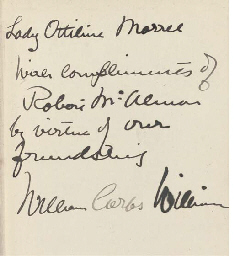 Lady Ottiline Morrel
With compliments of
Robert McAlmon
by virtue of our
friendship
William Carlos William